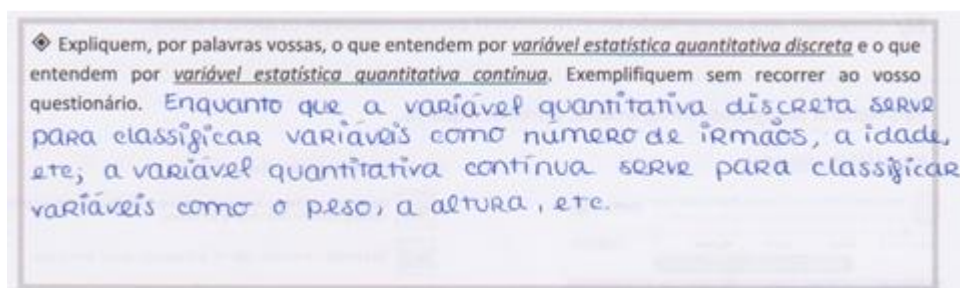 ◈ Expliquem, por palavras vossas, o que entendem por variável estatística quantitativa discreta e o que
entendem por variável estatística quantitativa contínua. Exemplifiquem sem recorrer ao vosso
questionário. Enquanto que a variável quantitativa discreta serve
para classificar variáveis como número de irmãos, a idade,
etc; a variável quantitativa contínua serve para classificar
variáveis como o peso, a altura, etc.